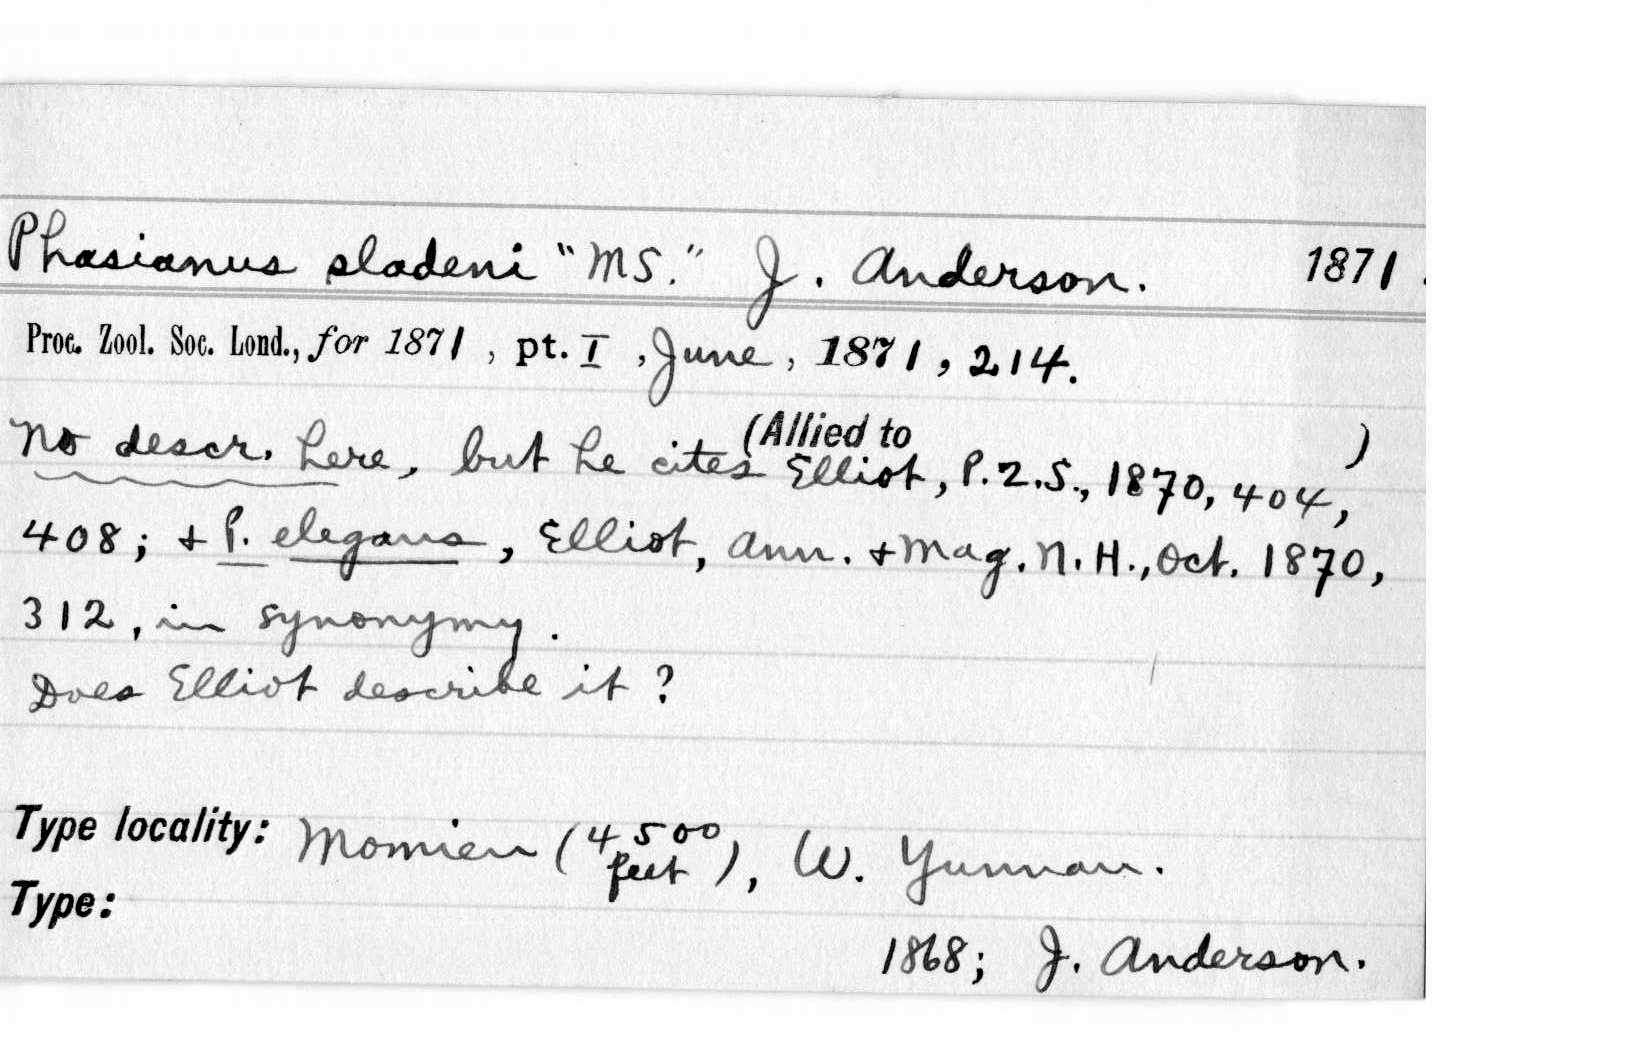 Phasianus sladeni "MS." J. Anderson. 1871.
Proc. Zool. Soc. Lond., for 1871, pt. I, June, 1871, 214.
(Allied to )
No descr. here, but he cites Elliot, P.Z.S., 1870, 404,
408; + P. elegans, Elliot, Ann. + Mag. N. H., Oct. 1870,
312, in synonymy.
Does Elliot describe it?
Type locality: Momien (4500 feet), W. Yunnan.
Type:
1868; J. Anderson.